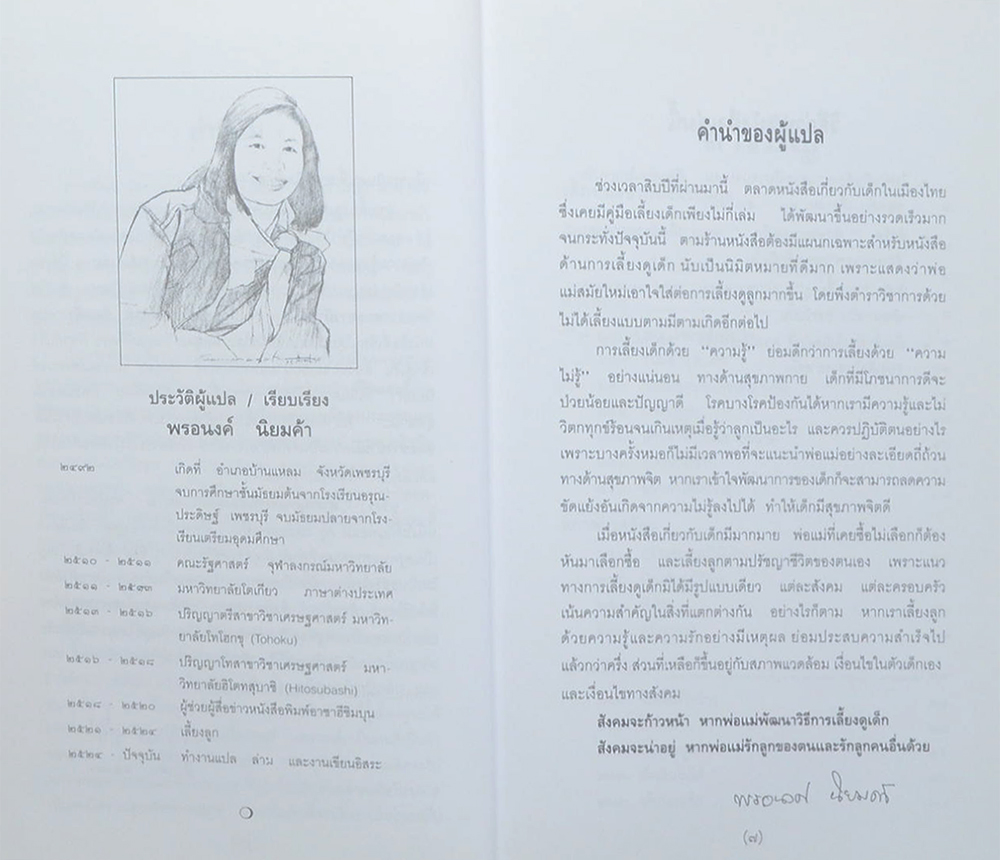 ประวัติผู้แปล / เรียบเรียง
พรอนงค์ นิยมค้า
๒๔๙๒ เกิดที่ อำเภอบ้านแหลม จังหวัดเพชรบุรี
จบการศึกษาชั้นมัธยมต้นจากโรงเรียนอรุณ-
ประดิษฐ์ เพชรบุรี จบมัธยมปลายจากโรง-
เรียนเตรียมอุดมศึกษา
๒๕๑๐ - ๒๕๑๑ คณะรัฐศาสตร์ จุฬาลงกรณ์มหาวิทยาลัย
๒๕๑๑ - ๒๕๑๓ มหาวิทยาลัยโตเกียว ภาษาต่างประเทศ
๒๕๑๓ - ๒๕๑๖ ปริญญาตรีสาขาวิชาเศรษฐศาสตร์ มหาวิท-
ยาลัยโทโฮกขุ (Tohoku)
๒๕๑๖ - ๒๕๑๘ ปริญญาโทสาขาวิชาเศรษฐศาสตร์ มหา-
วิทยาลัยฮิโตทสุบาชิ (Hitosubashi)
๒๕๑๘ - ๒๕๒๐ ผู้ช่วยผู้สื่อข่าวหนังสือพิมพ์อาซาฮีชิมบุน
๒๕๒๑ - ๒๕๒๔ เลี้ยงลูก
๒๕๒๔ - ปัจจุบัน ทำงานแปล ล่าม และงานเขียนอิสระ
คำนำของผู้แปล
ช่วงเวลาสิบปีที่ผ่านมานี้ ตลาดหนังสือเกี่ยวกับเด็กในเมืองไทย
ซึ่งเคยมีคู่มือเลี้ยงเด็กเพียงไม่กี่เล่ม ได้พัฒนาขึ้นอย่างรวดเร็วมาก
จนกระทั่งปัจจุบันนี้ ตามร้านหนังสือต้องมีแผนกเฉพาะสำหรับหนังสือ
ด้านการเลี้ยงดูเด็ก นับเป็นนิมิตหมายที่ดีมาก เพราะแสดงว่าพ่อ
แม่สมัยใหม่เอาใจใส่ต่อการเลี้ยงดูลูกมากขึ้น โดยพึ่งตำราวิชาการด้วย
ไม่ได้เลี้ยงแบบตามมีตามเกิดอีกต่อไป
การเลี้ยงเด็กด้วย “ความรู้” ย่อมดีกว่าการเลี้ยงด้วย “ความ
ไม่รู้” อย่างแน่นอน ทางด้านสุขภาพกาย เด็กที่มีโภชนาการดีจะ
ป่วยน้อยและปัญญาดี โรคบางโรคป้องกันได้หากเรามีความรู้และไม่
วิตกทุกข์ร้อนจนเกินเหตุเมื่อรู้ว่าลูกเป็นอะไร และควรปฏิบัติตนอย่างไร
เพราะบางครั้งหมอก็ไม่มีเวลาพอที่จะแนะนำพ่อแม่อย่างละเอียดถี่ถ้วน
ทางด้านสุขภาพจิต หากเราเข้าใจพัฒนาการของเด็กก็จะสามารถลดความ
ขัดแย้งอันเกิดจากความไม่รู้ลงไปได้ ทำให้เด็กมีสุขภาพจิตดี
เมื่อหนังสือเกี่ยวกับเด็กมีมากมาย พ่อแม่ที่เคยซื้อไม่เลือกก็ต้อง
หันมาเลือกซื้อ และเลี้ยงลูกตามปรัชญาชีวิตของตนเอง เพราะแนว
ทางการเลี้ยงดูเด็กมิได้มีรูปแบบเดียว แต่ละสังคม แต่ละครอบครัว
เน้นความสำคัญในสิ่งที่แตกต่างกัน อย่างไรก็ตาม หากเราเลี้ยงลูก
ด้วยความรู้และความรักอย่างมีเหตุผล ย่อมประสบความสำเร็จไป
แล้วกว่าครึ่ง ส่วนที่เหลือก็ขึ้นอยู่กับสภาพแวดล้อม เงื่อนไขในตัวเด็กเอง
และเงื่อนไขทางสังคม
สังคมจะก้าวหน้า หากพ่อแม่พัฒนาวิธีการเลี้ยงดูเด็ก
สังคมจะน่าอยู่ หากพ่อแม่รักลูกของตนและรักลูกคนอื่นด้วย
พรอนงค์ นิยมค้า
(๗)